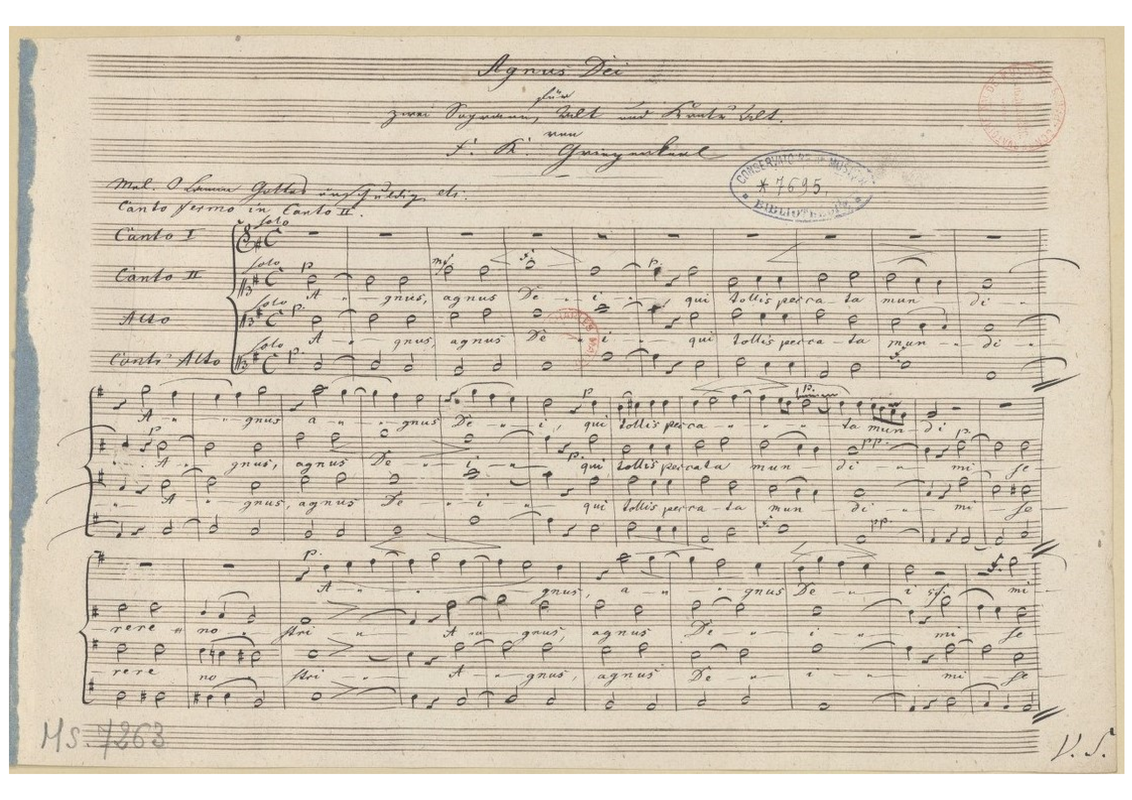 Agnus Dei
für
zwei Soprane, Alt und Contr'Alt.
von
F. K. Griepenkerl
CONSERVATOIRE DE MUSIQUE
* 7695.
BIBLIOTHÈQUE
Mel. O Lamm Gottes unschuldig etc.
Canto fermo in Canto II.
Solo
Canto I
Solo p mf f p.
Canto II
A - gnus, agnus De - i - qui tollis pecca - ta mun - di -
Solo p.
Alto
A - gnus, agnus De - i - qui tollis pecca - ta mun - di -
Solo p. f.
Contr' Alto
p. p. p.
A - gnus a - gnus De - i, qui tollis pecca - - - ta mun di
p. p. pp. p.
A - gnus, agnus De - i - qui tollis peccata mun - di - mi se
A - gnus, agnus De - i - qui tollis pecca - ta mun - di - mi - se
f. pp.
p. f.
A - - gnus, a - gnus De - - i mi
sf.
rere no - stri - A - gnus, agnus De - i - mi se
rere no - stri - A - gnus, agnus De - i - mi - se
MS. 7263
V. S.